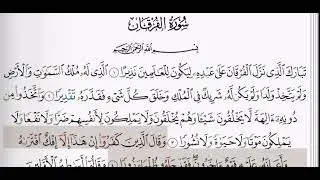 سُورَةُ الفُرْقَانِ
بِسْمِ اللَّهِ الرَّحْمَنِ الرَّحِيمِ
تَبَارَكَ الَّذِي نَزَّلَ الْفُرْقَانَ عَلَى عَبْدِهِ لِيَكُونَ لِلْعَالَمِينَ نَذِيرًا ١ الَّذِي لَهُ مُلْكُ السَّمَوَاتِ وَالْأَرْضِ
وَلَمْ يَتَّخِذْ وَلَدًا وَلَمْ يَكُن لَّهُ شَرِيكٌ فِي الْمُلْكِ وَخَلَقَ كُلَّ شَيْءٍ فَقَدَّرَهُ تَقْدِيرًا ٢ وَاتَّخَذُوا مِن
دُونِهِ آلِهَةً لَّا يَخْلُقُونَ شَيْئًا وَهُمْ يُخْلَقُونَ وَلَا يَمْلِكُونَ لِأَنفُسِهِمْ ضَرًّا وَلَا نَفْعًا وَلَا
يَمْلِكُونَ مَوْتًا وَلَا حَيَوةً وَلَا نُشُورًا ٣ وَقَالَ الَّذِينَ كَفَرُوا إِنْ هَذَا إِلَّا إِفْكٌ افْتَرَاهُ